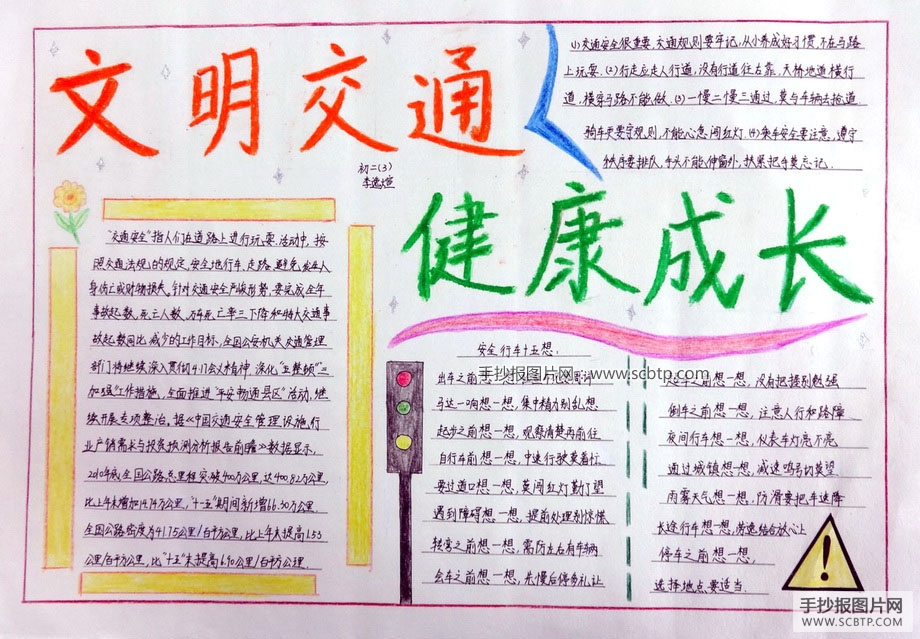 文明交通
初二(3)
李逸煊
(1)交通安全很重要,交通规则要牢记,从小养成好习惯,不在马路
上玩耍.(2)行走应走人行道,没有行道往右靠.天桥地道横行
道,横穿马路不能做.(3)一慢二慢三通过,莫与车辆去抢道.
骑车更要守规则,不能心急闯红灯.(4)乘车安全要注意,遵守
秩序要排队,手头不能伸窗外,扶紧把手莫忘记.
健康成长
"交通安全"指人们在道路上进行玩耍.活动中,按
照交通法规的规定,安全地行车、走路,避免发生人
身伤亡或财物损失.针对交通安全严峻形势,要完成全年
事故起数、死亡人数、万车死亡率三下降和特大交通事
故起数同比减少的工作目标,全国公安机关交通管理
部门将继续深入贯彻4.17会议精神,深化"五整顿""三
加强"工作措施,全面推进"平安畅通县区"活动,继
续开展专项整治.据《中国交通安全管理设施行
业产销需求与投资预测分析报告前瞻》数据显示,
2010年底全国公路总里程突破400万公里,达400.82万公里,
比上年末增加14.74万公里,"十一五"期间新增66.30万公里.
全国公路密度为41.75公里/百平方公里,比上年末提高1.53
公里/百平方公里,比"十五"末提高6.90公里/百平方公里.
安全行车十五想:
出车之前想一想,
马达一响想一想,集中精力别乱想
起步之前想一想,观察清楚再前往
自行车前想一想,中速行驶莫着忙
要过道口想一想,莫闯红灯勤了望
遇到障碍想一想,提前处理别惊慌
转弯之前想一想,需防左右有车辆
会车之前想一想,先慢后停务礼让
之前想一想,没有把握别勉强
倒车之前想一想,注意人行和路障
夜间行车想一想,仪表车灯亮不亮
通过城镇想一想,减速鸣号切莫望
雨雾天气想一想,防滑要把车速降
长途行车想一想,劳逸结合放心上
停车之前想一想,
选择地点要适当.
手抄报图片网:www.scbtp.com
手抄报图片网
WWW.SCBTP.COM